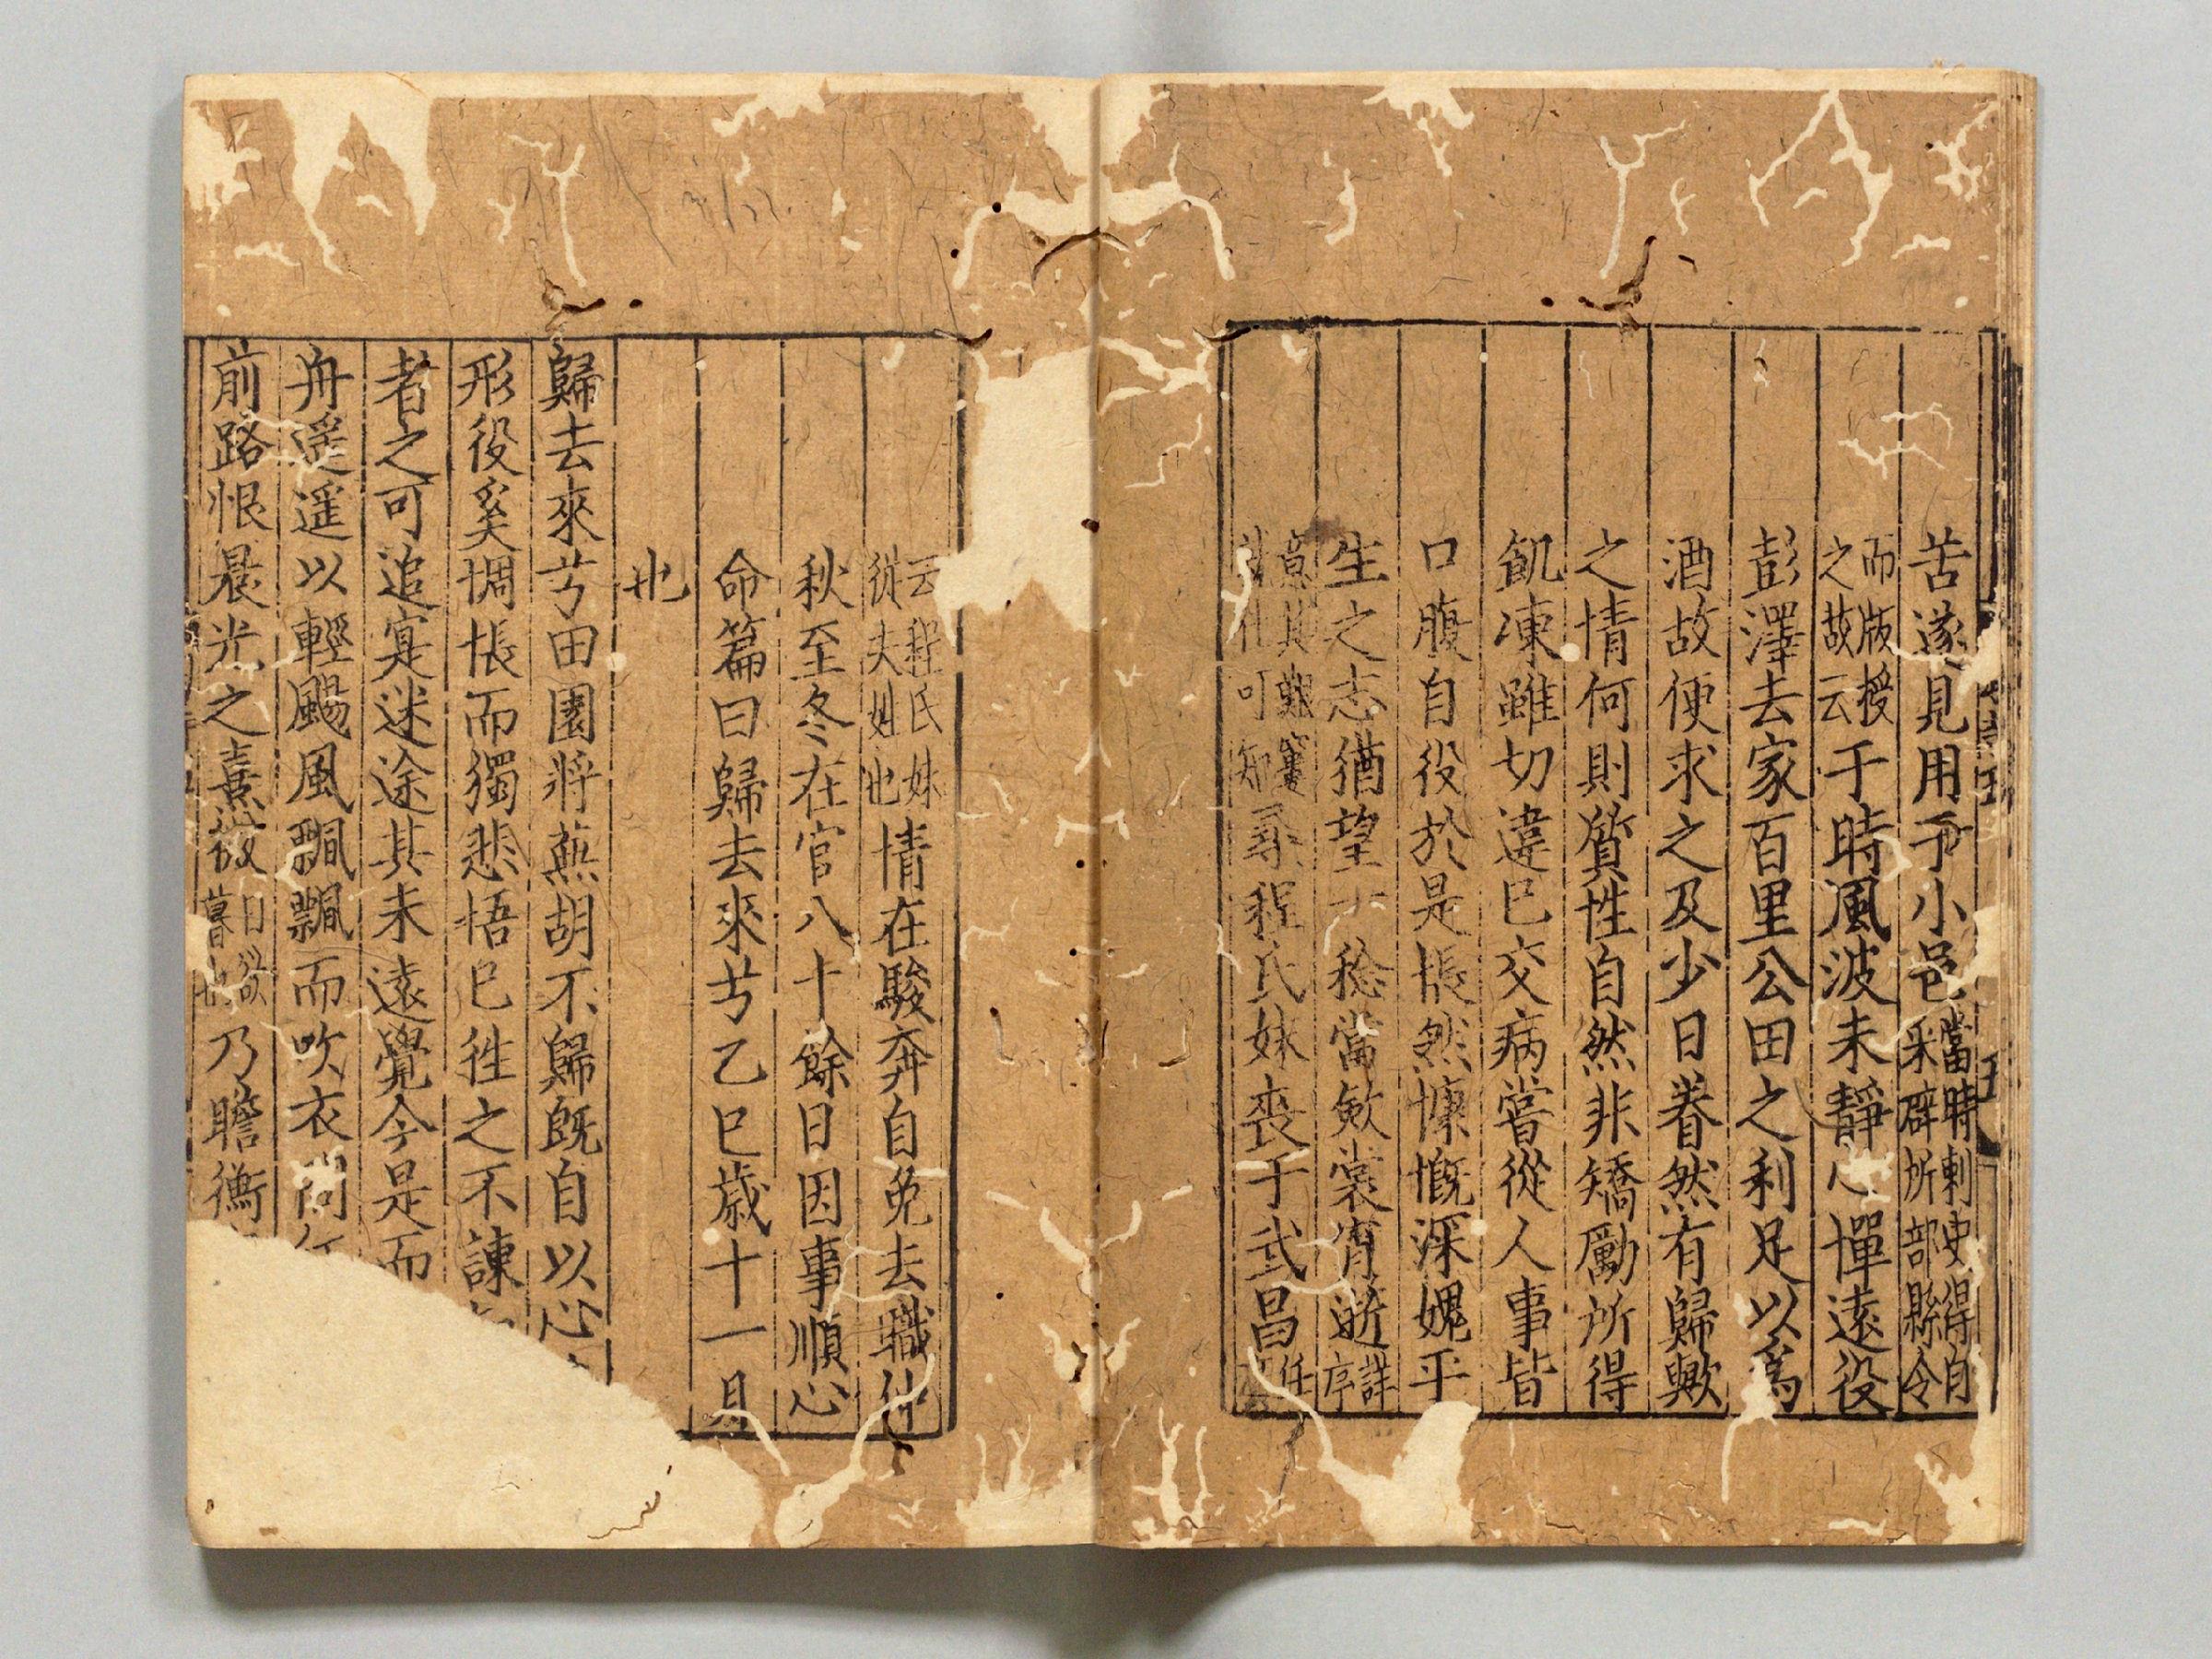 苦遂見用于小邑當時刺史得自
采辟所部縣令
而版授
之故云于時風波未靜心憚遠役
彭澤去家百里公田之利足以爲
酒故便求之及少日眷然有歸歟
之情何則質性自然非矯勵所得
飢凍雖切違已交病嘗從人事皆
口腹自役於是悵然慷慨深媿平
生之志猶望一稔當斂裳宵逝詳
序
意其艱窶
就仕可知尋程氏妹喪于武昌任
云程氏妹
從夫姓也情在駿奔自免去職仲
秋至冬在官八十餘日因事順心
命篇曰歸去來兮乙巳歲十一月
也
歸去來兮田園將蕪胡不歸旣自以心
形役奚惆悵而獨悲悟已徃之不諫
者之可追寔迷途其未遠覺今是而
舟遥遥以輕颺風飄飄而吹衣問
前路恨晨光之熹微日欲
暮也乃瞻衡